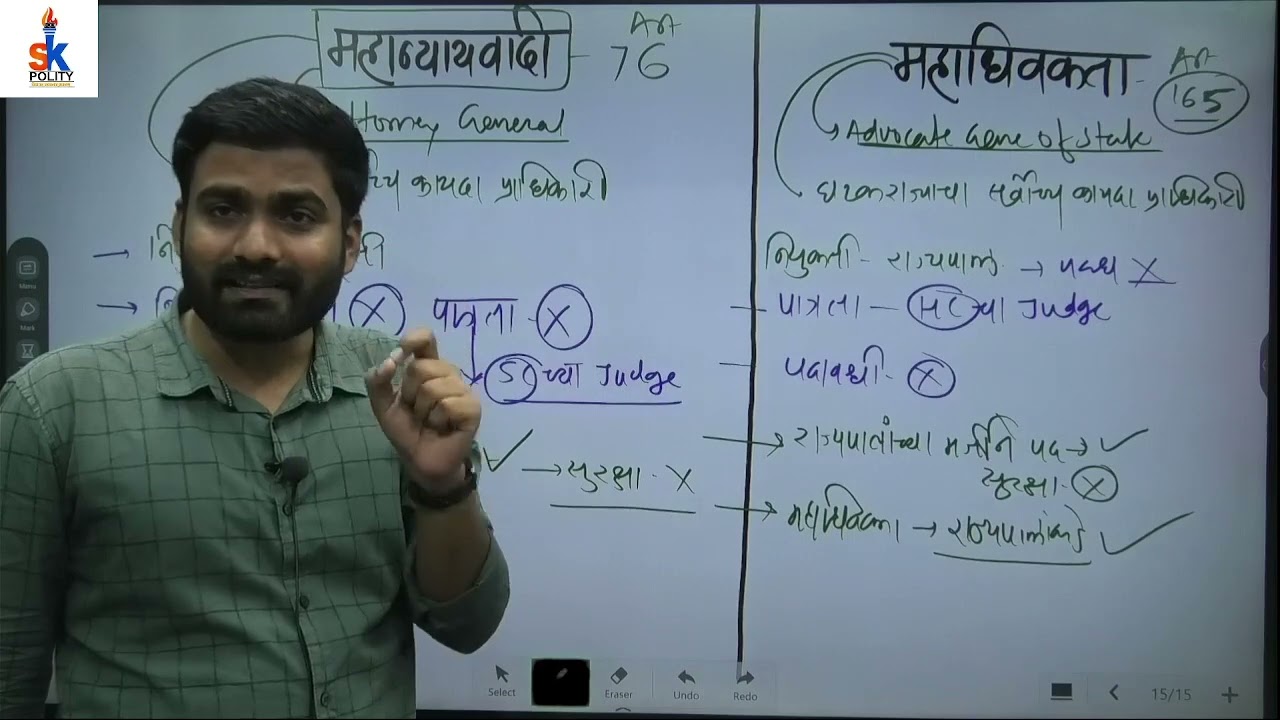 SK
POLITY
महान्यायवादी - Art 76
ttorney General
च्च कायदा प्राधिकारी
नि
री
पात्रता - X
SC च्या Judge
सुरक्षा - X
महाधिवक्ता - Art 165
Advocate Gene of State
घटकराज्याचा सर्वोच्च कायदा प्राधिकारी
नियुक्ती - राज्यपाल → X
पात्रता - HC च्या Judge
पदावधी - X
राज्यपालांच्या मर्जीने पद →
सुरक्षा - X
महाधिवक्ता → राज्यपालांकडे
Menu
Mark
Select
Eraser
Undo
Redo
15/15